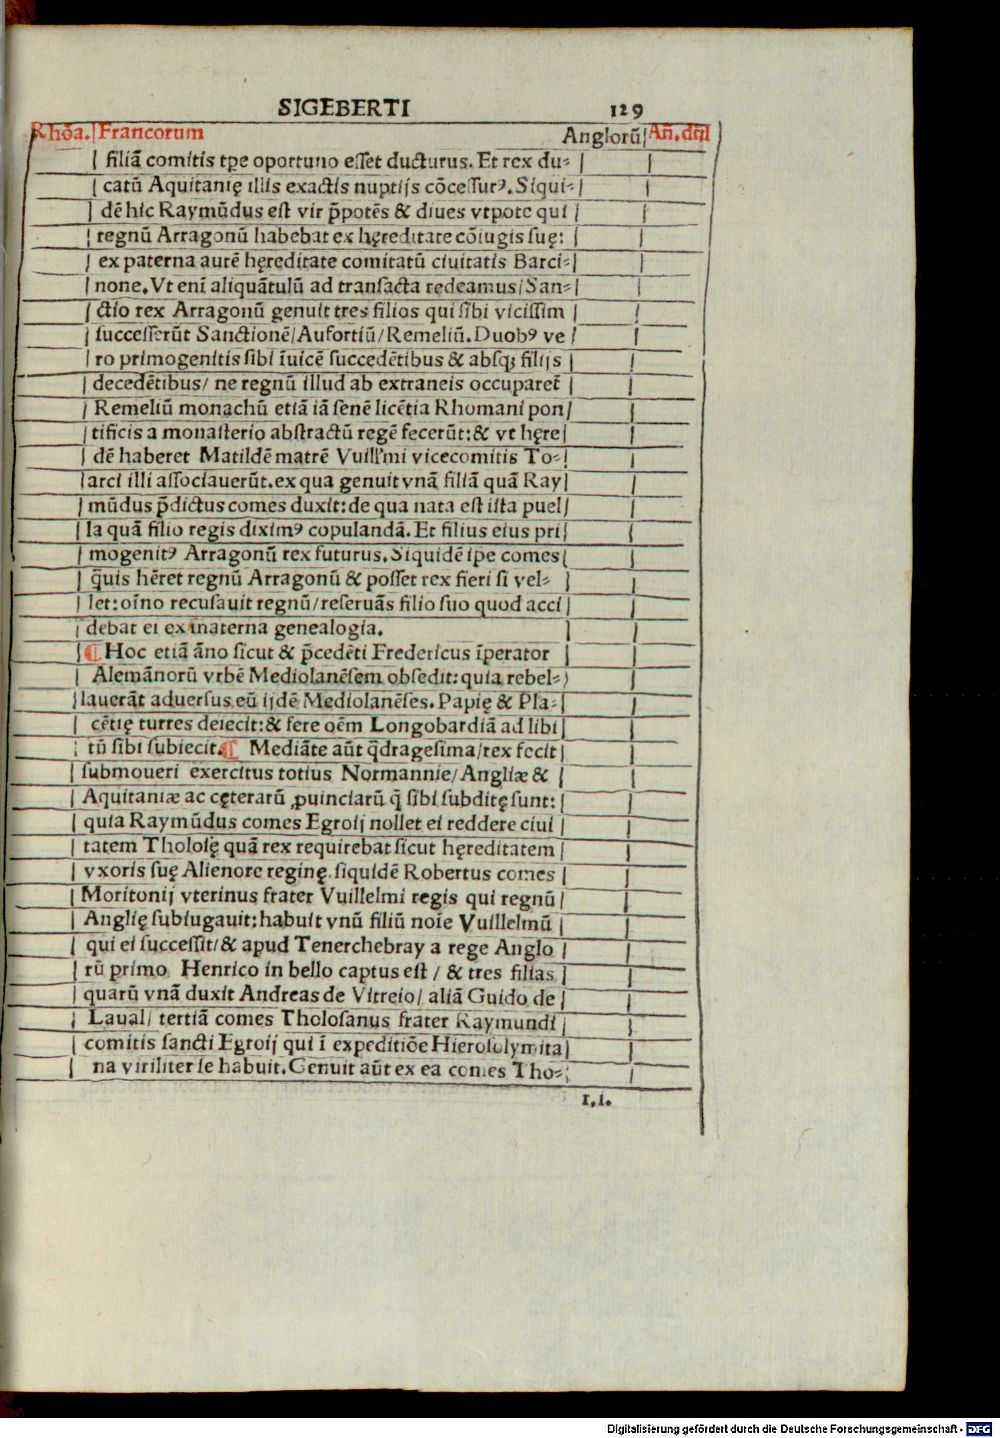 SIGEBERTI 129
Rhõa. Francorum Anglorũ Añ.dñI
filiã comitis tp̃e oportuno eſſet ducturus. Et rex du⸗
catũ Aquitanię illis exactis nuptijs cõceſſurꝰ. Siqui⸗
dẽ hic Raymũdus eſt vir p̃potẽs & diues vtpote qui
regnũ Arragonũ habebat ex hęreditate cõiugis ſuę:
ex paterna autẽ hęreditate comitatũ ciuitatis Barci⸗
none. Vt enĩ aliquãtulũ ad tranſacta redeamus/ San⸗
ctio rex Arragonũ genuit tres filios qui ſibi viciſſim
ſucceſſerũt Sanctionẽ/ Aufortiũ/ Remeliũ. Duobꝰ ve
ro primogenitis ſibi ĩuicẽ ſuccedẽtibus & abſqꝫ filijs
decedẽtibus/ ne regnũ illud ab extraneis occuparet̃
Remeliũ monachũ etiã iã ſenẽ licẽtia Rhomani pon
tificis a monaſterio abſtractũ regẽ fecerũt: & vt hęre
dẽ haberet Matildẽ matrẽ Vuill'mi vicecomitis To⸗
arci illi aſſociauerũt. ex qua genuit vnã filiã quã Ray
mũdus p̃dictus comes duxit: de qua nata eſt iſta puel
la quã filio regis diximꝰ copulandã. Et filius eius pri
mogenitꝰ Arragonũ rex futurus. Siquidẽ ip̃e comes
q̃uis hẽret regnũ Arragonũ & poſſet rex fieri ſi vel⸗
let: oĩno recuſauit regnũ/ reſeruãs filio ſuo quod acci
debat ei ex materna genealogia.
¶ Hoc etiã ãno ſicut & p̃cedẽti Fredericus ĩperator
Alemãnorũ vrbẽ Mediolanẽſem obſedit: quia rebel⸗
lauerãt aduerſus eũ ijdẽ Mediolanẽſes. Papię & Pla⸗
cẽtię turres deiecit: & fere oẽm Longobardiã ad libi
tũ ſibi ſubiecit. ¶ Mediãte aũt q̃dragesima/ rex fecit
ſubmoueri exercitus totius Normannie/ Angliæ &
Aquitaniæ ac cęterarũ ꝓuinciarũ q̃ ſibi ſubditę ſunt:
quia Raymũdus comes Egroij nollet ei reddere ciui
tatem Tholoſę quã rex requirebat ſicut hęreditatem
vxoris ſuę Alienore reginę. ſiquidẽ Robertus comes
Moritonij vterinus frater Vuillelmi regis qui regnũ
Anglię ſubiugauit: habuit vnũ filiũ noĩe Vuillelmũ
qui ei ſucceſſit/ & apud Tenerchebray a rege Anglo
rũ primo Henrico in bello captus eſt / & tres filias
quarũ vnã duxit Andreas de Vitreio/ aliã Guido de
Laual/ tertiã comes Tholoſanus frater Raymundi
comitis ſancti Egroij qui ĩ expeditiõe Hieroſolymita
na viriliter ſe habuit. Genuit aũt ex ea comes Tho⸗
r.i.
Digitalisierung gefördert durch die Deutsche Forschungsgemeinschaft - DFG